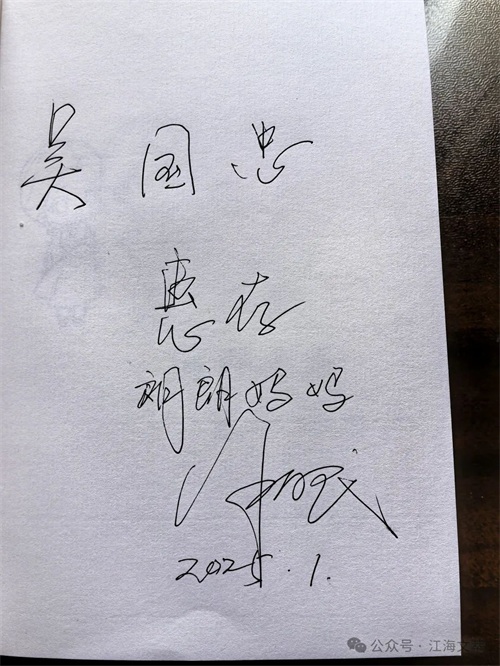 吴国忠
惠存
朗朗妈妈
2025.1.
公众号·江海文